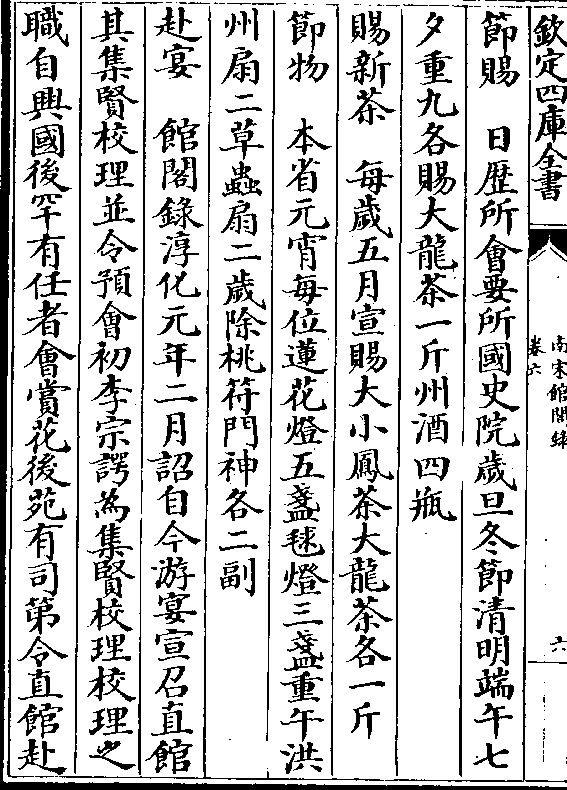 欽定四庫全書
南宋館閣錄
卷六
六
節賜　日歷所會要所國史院歲旦冬節清明端午七
夕重九各賜大龍茶一斤州酒四瓶
賜新茶　每歲五月宣賜大小鳳茶大龍茶各一斤
節物　本省元宵每位蓮花燈五盞毬燈三盞重午洪
州扇二草蟲扇二歲除桃符門神各二副
赴宴　館閣錄淳化元年二月詔自今游宴宣召直館
其集賢校理並令預會初李宗諤為集賢校理校理之
職自興國後罕有任者會賞花後苑有司第令直館赴